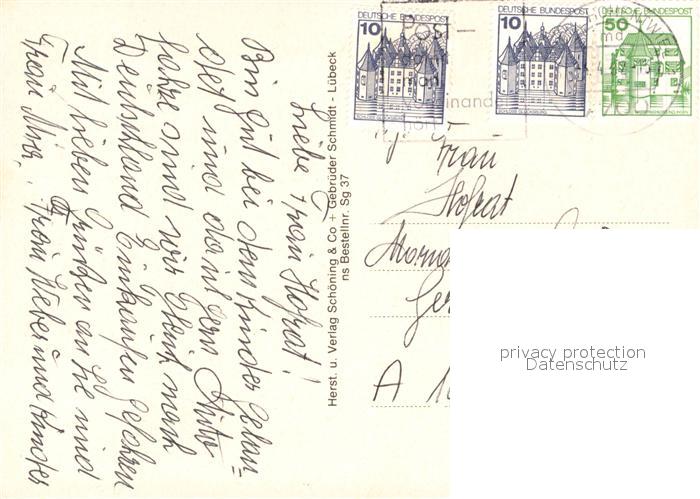 Liebe Frau Hofrat!
Bin gut bei den Kinder gelan=
det und damit dem Auto
fahre sind wir gleich nach
Deutschland Einkaufen gefahren
Mit lieben Grüßen an Sie und
Frau Mina, Frau Weber und Kinder
Herst. u. Verlag Schöning & Co + Gebrüder Schmidt - Lübeck
ns Bestellnr. Sg 37
DEUTSCHE BUNDESPOST
10
DEUTSCHE BUNDESPOST
10
DEUTSCHE BUNDESPOST
50
Frau
Hofrat
A
privacy protection
Datenschutz